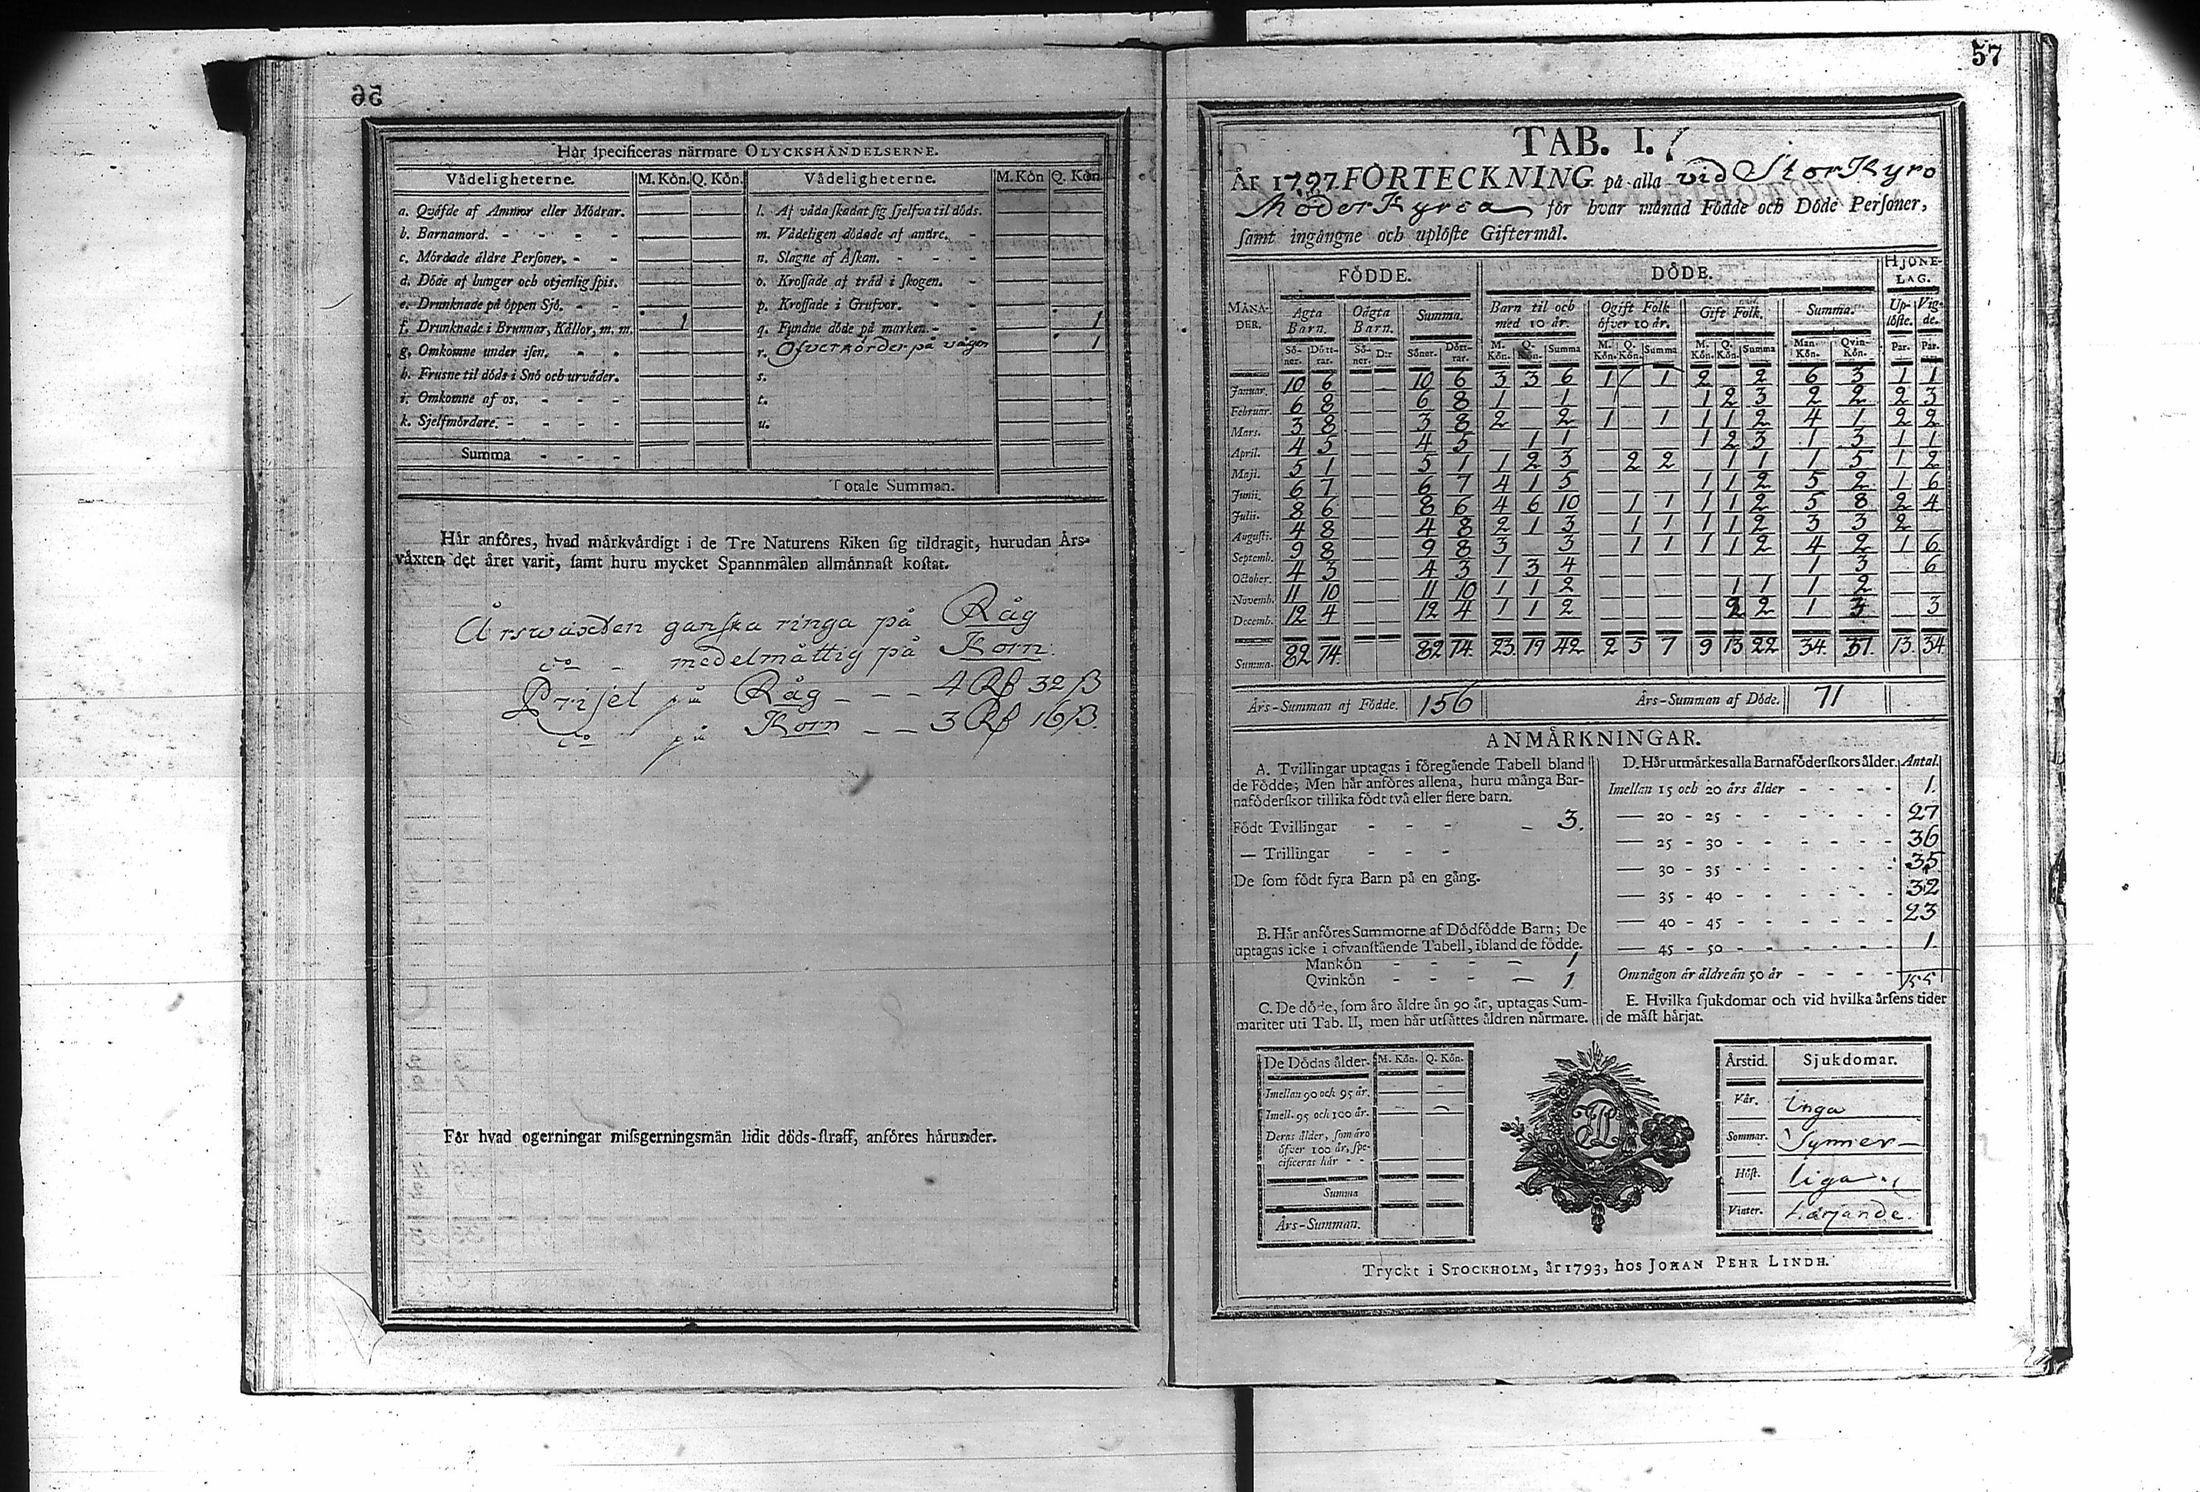 56
Här specificeras närmare OLYCKSHÄNDELSERNE.
Vådeligheterne. M. Kön. Q. Kön. Vådeligheterne. M. Kön Q. Kön.
a. Qväfde af Ammor eller Mödrar. l. Af våda skadat sig sjelfva til döds.
b. Barnamord. - - - - m. Vådeligen dödade af andre. -
c. Mördade äldre Personer. - - n. Slagne af Åskan. - - -
d. Döde af hunger och otjenlig spis. o. Krossade af träd i skogen. -
e. Drunknade på öppen Sjö. - - p. Krossade i Grufvor. - -
f. Drunknade i Brunnar, Källor, m. m. 1 q. Fundne döde på marken. - - 1
g. Omkomne under isen. - - r. Öfverkörder på vägen 1
h. Frusne til döds i Snö och urväder. s.
i. Omkomne af os. - - - t.
k. Sjelfmördare. - - - - u.
Summa - - -
Totale Summan.
Här anföres, hvad märkvärdigt i de Tre Naturens Riken sig tildragit, hurudan Års-
växten det året varit, samt huru mycket Spannmålen allmännast kostat.
Årswäxten ganska ringa på Råg
do - medelmåttig på Korn.
Priset på Råg - - - 4 Rß 32 ß
do på Korn - - 3 Rß 16 ß.
För hvad ogerningar missgerningsmän lidit döds-straff, anföres härunder.
57
TAB. I.
År 1797. FÖRTECKNING på alla vid StorKyro
ModerKyrca för hvar månad Födde och Döde Personer,
samt ingångne och uplöste Giftermål.
MÅNADER. FÖDDE. DÖDE. HJONELAG.
Ägta Barn. Oägta Barn. Summa. Barn til och med 10 år. Ogift Folk öfver 10 år. Gift Folk. Summa. Uplöste. Vigde.
Söner. Döttrar. Söner. D:r Söner. Döttrar. M. Kön. Q. Kön. Summa M. Kön. Q. Kön. Summa M. Kön. Q. Kön. Summa Man Kön. Qvin-Kön. Par. Par.
Januar. 10 6 — — 10 6 3 3 6 1 1 2 2 6 3 1 1
Februar. 6 8 — — 6 8 1 — 1 1 2 3 2 2 2 3
Mars. 3 8 — — 3 8 2 — 2 1 — 1 1 1 2 4 1 2 2
April. 4 5 — — 4 5 — 1 1 — — — 1 2 3 1 3 1 1
Maji. 5 1 — — 5 1 1 2 3 — 2 2 — 1 1 1 5 1 2
Junii. 6 7 — — 6 7 4 1 5 — — — 1 1 2 5 2 1 6
Julii. 8 6 — — 8 6 4 6 10 — 1 1 1 1 2 5 8 2 4
Augusti. 4 8 — — 4 8 2 1 3 — 1 1 1 1 2 3 3 2 —
Septemb. 9 8 — — 9 8 3 — 3 — 1 1 1 1 2 4 2 1 6
October. 4 3 — — 4 3 1 3 4 — — — — — — 1 3 — 6
Novemb. 11 10 — — 11 10 1 1 2 — — — — 1 1 1 2 — —
Decemb. 12 4 — — 12 4 1 1 2 — — — — 2 2 1 3 — 3
Summa. 82 74. 82 74. 23. 19 42 2 5 7 9 13 22 34. 37. 13. 34
Års-Summan af Födde. 156 Års-Summan af Döde. 71
ANMÄRKNINGAR.
A. Tvillingar uptagas i föregående Tabell bland
de Födde; Men här anföres allena, huru många Bar-
naföderskor tillika födt två eller flere barn.
Födt Tvillingar - - - - 3.
— Trillingar - - -
De som födt fyra Barn på en gång.
B. Här anföres Summorne af Dödfödde Barn; De
uptagas icke i ofvanstående Tabell, ibland de födde.
Mankön - - - - 1
Qvinkön - - - - 1
C. De döde, som äro äldre än 90 år, uptagas Sum-
mariter uti Tab. II, men här utsättes åldren närmare.
De Dödas ålder. M. Kön. Q. Kön.
Imellan 90 och 95 år.
Imell. 95 och 100 år.
Deras ålder, som äro
öfver 100 år, spe-
cificeras här - -
Summa
Års-Summan.
D. Här utmärkes alla Barnaföderskors ålder. Antal.
Imellan 15 och 20 års ålder - - - - 1.
— 20 - 25 - - - - - - 27
— 25 - 30 - - - - - - 36
— 30 - 35 - - - - - - 35
— 35 - 40 - - - - - - 32
— 40 - 45 - - - - - - 23
— 45 - 50 - - - - - - 1
Om någon är äldre än 50 år - - - -
155
E. Hvilka sjukdomar och vid hvilka årsens tider
de mäst härjat.
Årstid. Sjukdomar.
Vår. Inga
Sommar. Synner-
Höst. liga
Vinter. härjande.
Tryckt i STOCKHOLM, år 1793, hos JOHAN PEHR LINDH.